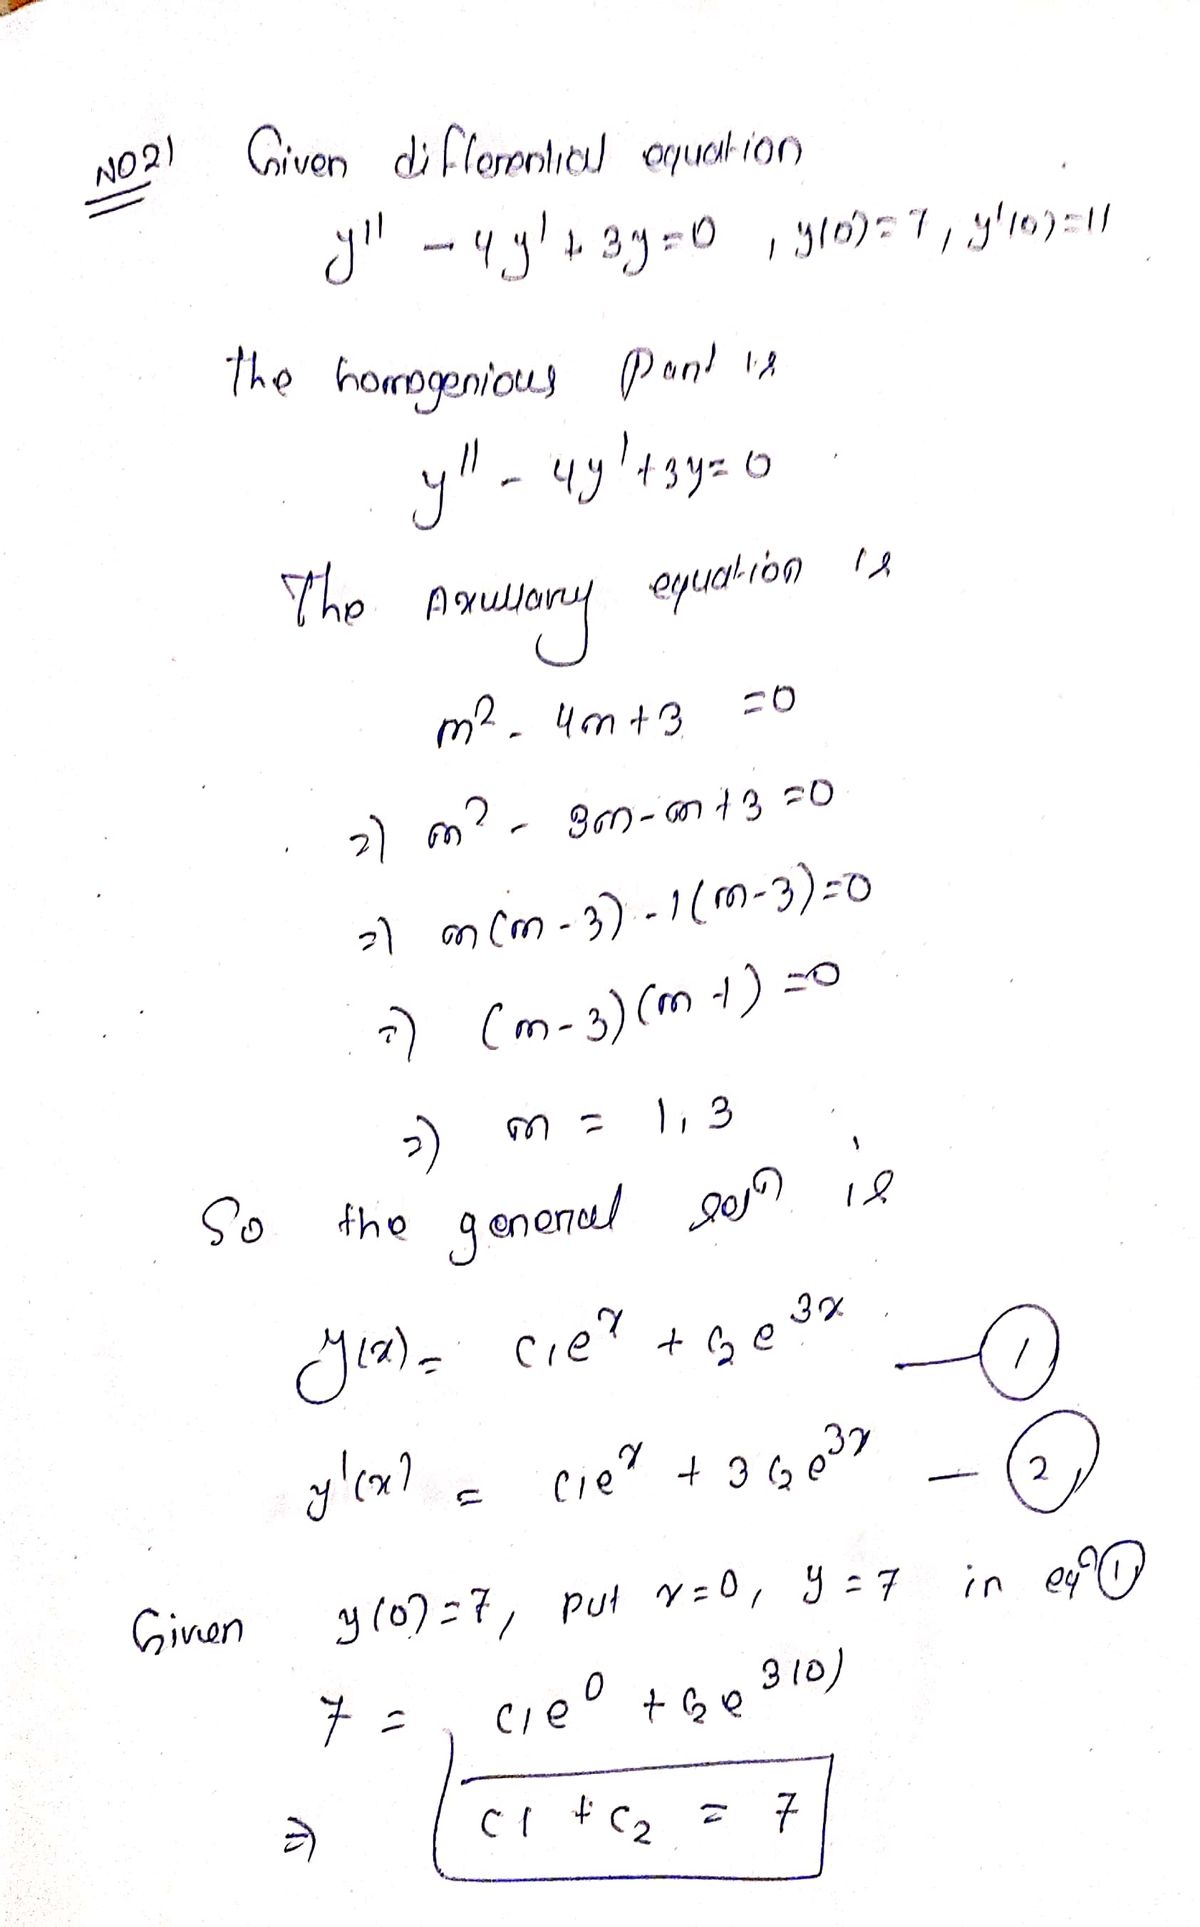 NO21 Given differential equation
y'' - 4y' + 3y = 0 , y(0) = 7, y'(0) = 11
the homogenious part is
y'' - 4y' + 3y = 0
The Axullary equation is
m² - 4m + 3 = 0
=) m² - 3m - m + 3 = 0
=) m(m - 3) - 1(m - 3) = 0
=) (m - 3)(m - 1) = 0
=) m = 1, 3
So the general solⁿ is
y(x) = c₁eˣ + c₂e³ˣ — ①
y'(x) = c₁eˣ + 3c₂e³ˣ — ②
Given y(0) = 7, put x = 0, y = 7 in eqⁿ ①
7 = c₁e⁰ + c₂e³⁽⁰⁾
=) c1 + c₂ = 7